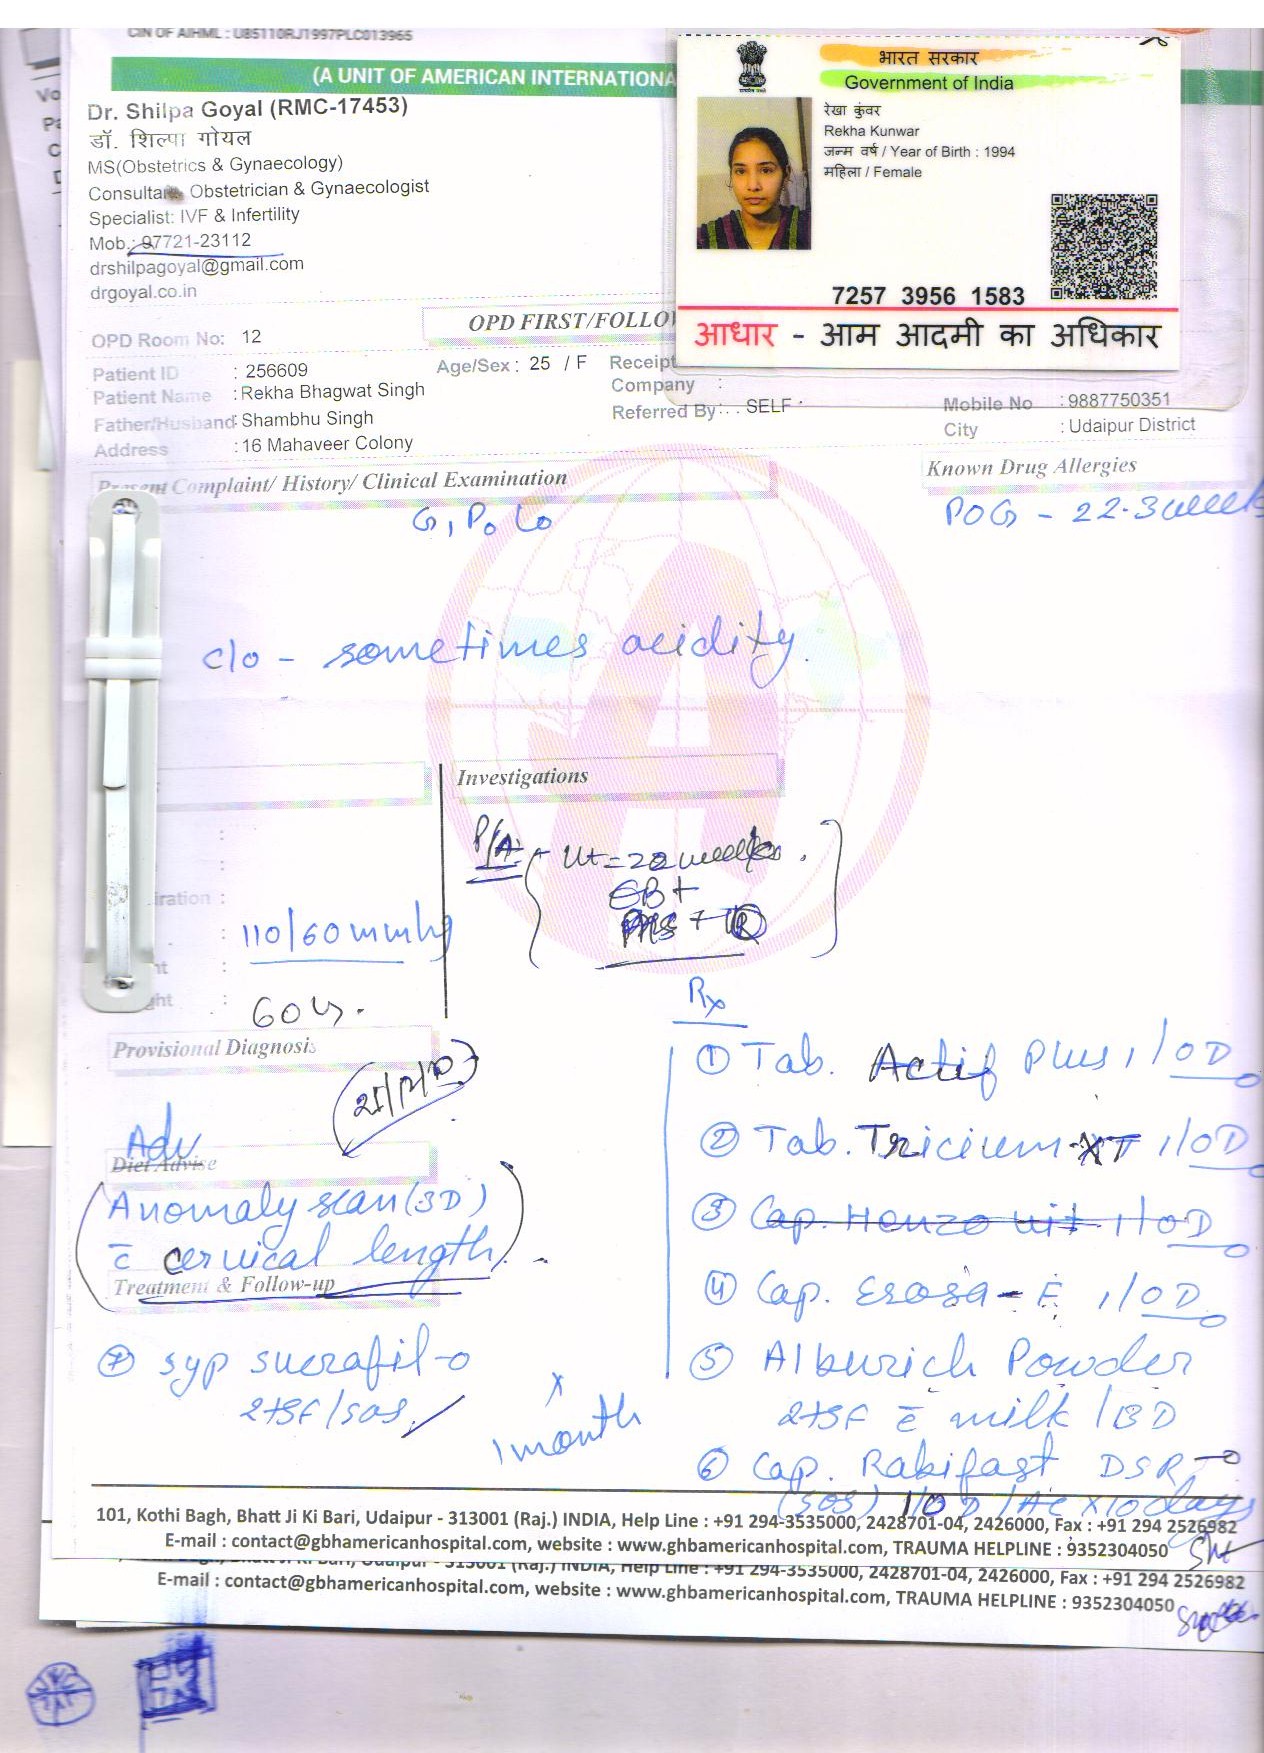 CIN OF AIHML : U85110RJ1997PLC013965
(A UNIT OF AMERICAN INTERNATIONA
Dr. Shilpa Goyal (RMC-17453)
डॉ. शिल्पा गोयल
MS(Obstetrics & Gynaecology)
Consulta Obstetrician & Gynaecologist
Specialist: IVF & Infertility
Mob.: 97721-23112
drshilpagoyal@gmail.com
drgoyal.co.in
भारत सरकार
Government of India
रेखा कुंवर
Rekha Kunwar
जन्म वर्ष / Year of Birth : 1994
महिला / Female
7257 3956 1583
आधार - आम आदमी का अधिकार
OPD FIRST/FOLLO
OPD Room No: 12
Patient ID : 256609 Age/Sex : 25 / F Receipt
Patient Name : Rekha Bhagwat Singh Company :
Father/Husband: Shambhu Singh Referred By: SELF Mobile No : 9887750351
Address : 16 Mahaveer Colony City : Udaipur District
Present Complaint/ History/ Clinical Examination
Known Drug Allergies
G1 P0 L0
POG - 22.3 week
c/o - sometimes acidity.
Investigations
P/A - Ut = 22 weeks.
EB+
iration :
110/60 mmhg
ght :
Rx
Provisional Diagnosis
① Tab. Actif Plus 1/OD
② Tab. Tricium-XT 1/OD
Adv
Diet Advise
Anomaly scan (3D)
c̄ cervical length
③ Cap. Henzo 1/OD
Treatment & Follow-up
④ Cap. Esosa-E 1/OD
⑤ Alburich Powder
2tsf c̄ milk /BD
⑥ Cap. Rabifast DSR
(SOS) 1/OD /AC x10days
⑦ syp sucrafil-o
2tsf/sos
x
1 month
101, Kothi Bagh, Bhatt Ji Ki Bari, Udaipur - 313001 (Raj.) INDIA, Help Line : +91 294-3535000, 2428701-04, 2426000, Fax : +91 294 2526982
E-mail : contact@gbhamericanhospital.com, website : www.ghbamericanhospital.com, TRAUMA HELPLINE : 9352304050
Udaipur - 313001 (Raj.) INDIA, Help Line : +91 294-3535000, 2428701-04, 2426000, Fax : +91 294 2526982
E-mail : contact@gbhamericanhospital.com, website : www.ghbamericanhospital.com, TRAUMA HELPLINE : 9352304050